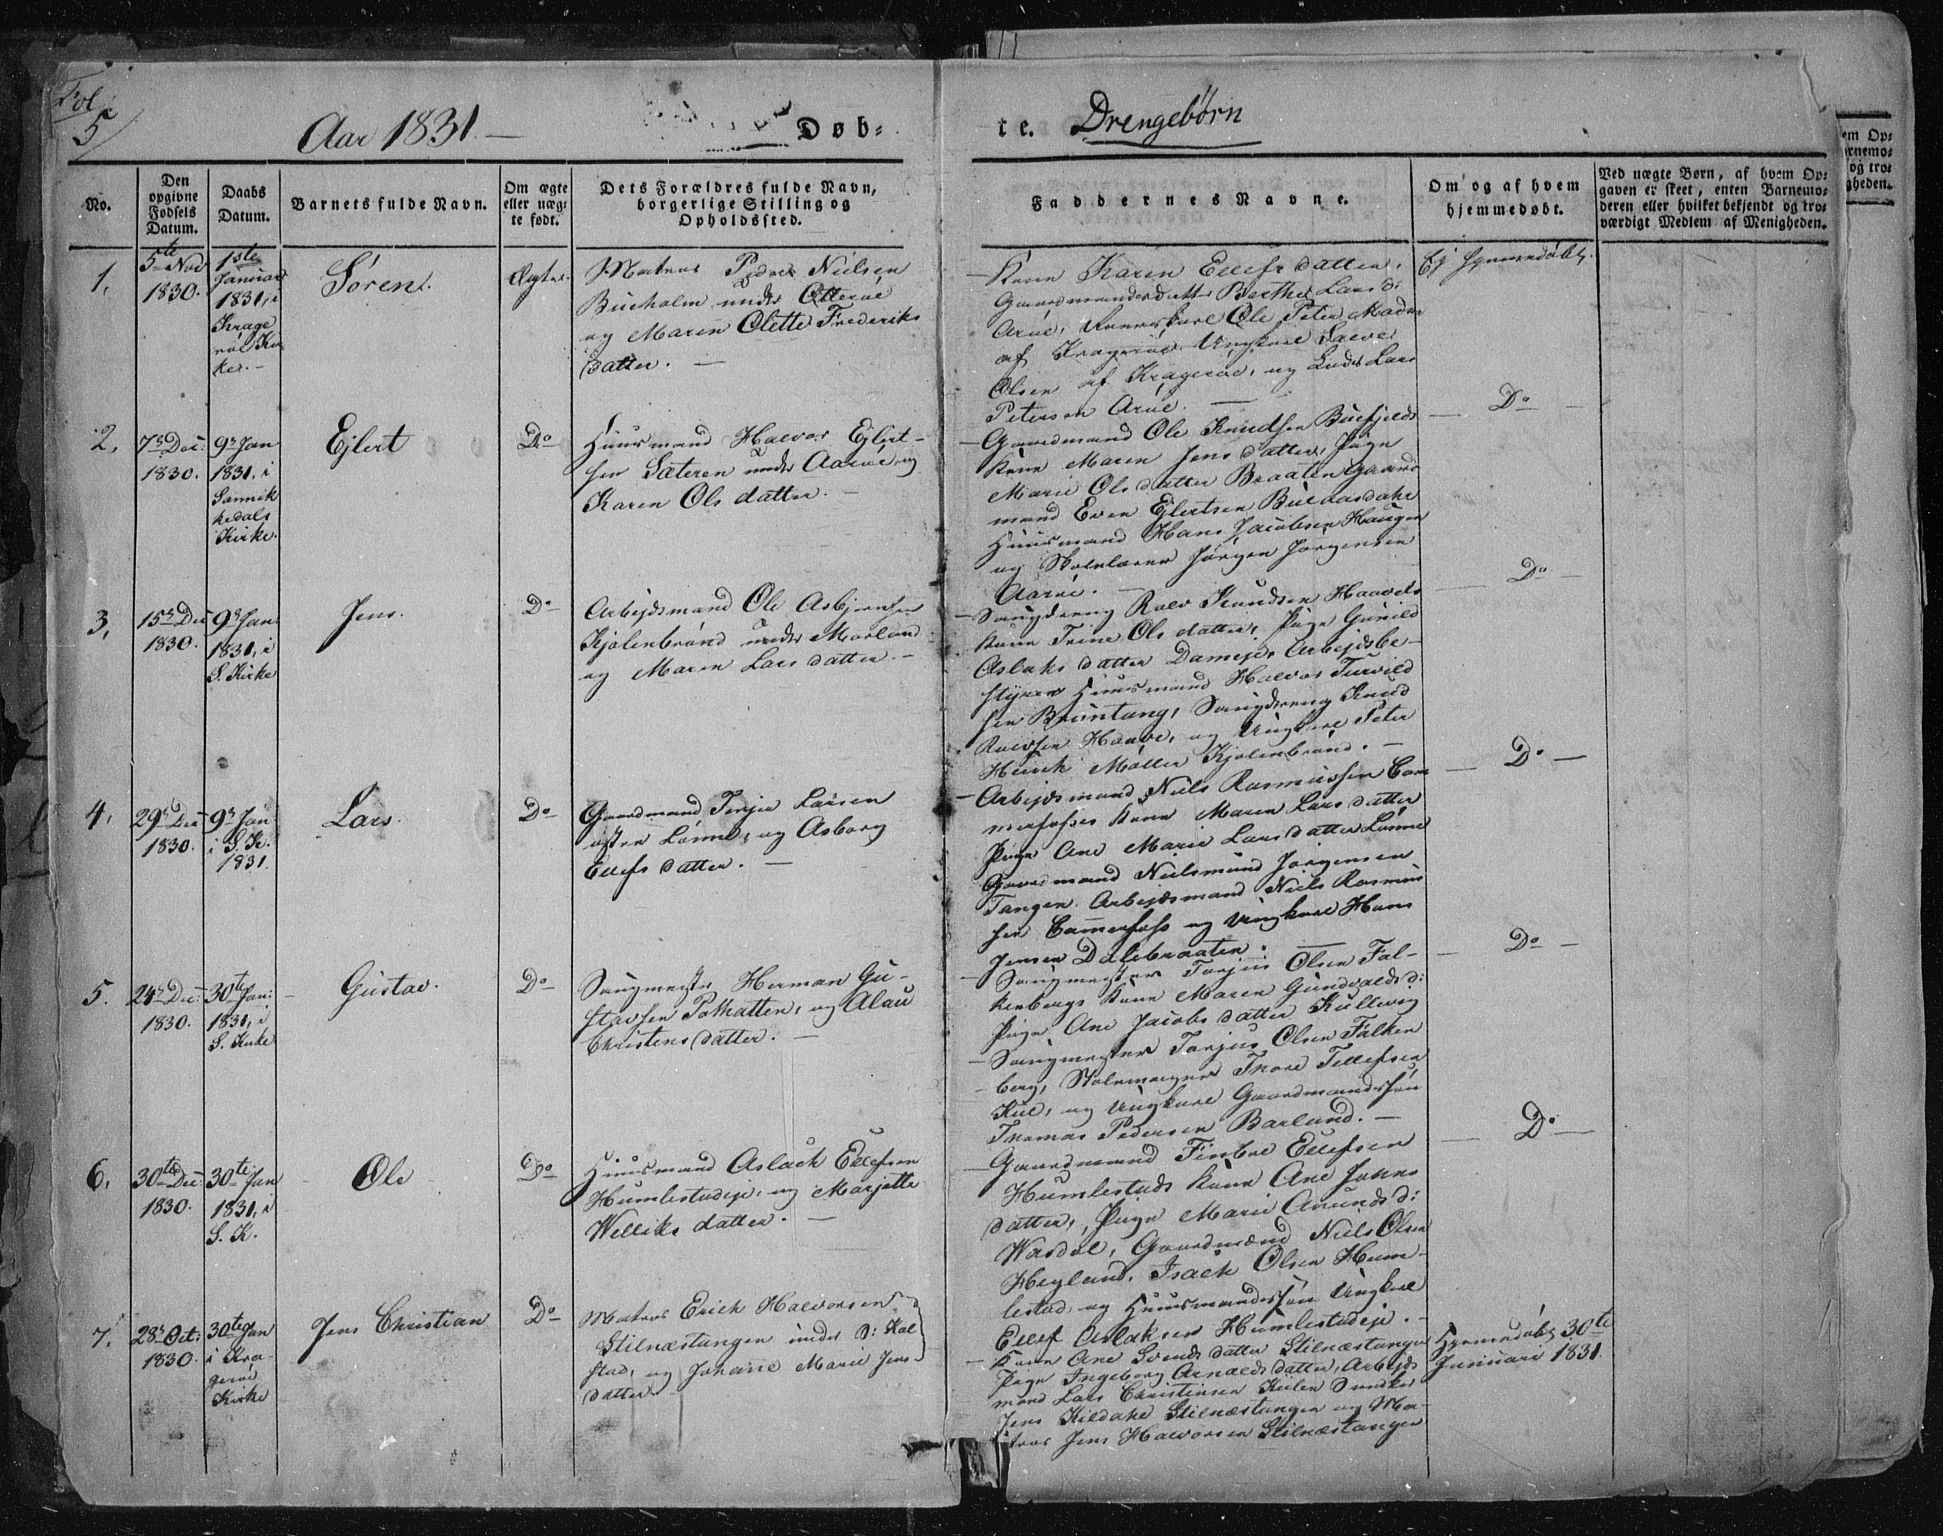 Fol.
5
Aar 1831. — Døb-
te. Drengebørn
No.
Den opgivne Fødsels Datum.
Daabs Datum.
Barnets fulde Navn.
Om ægte eller uægte født.
Dets Forældres fulde Navn, borgerlige Stilling og Opholdssted.
Faddernes Navne.
Om og af hvem hjemmedøbt.
Ved uægte Børn, af hvem Opgaven er skeet, enten Barnemoderen eller hvilket bekjendt og troværdigt Medlem af Menigheden.
1.
5te Nov
1830.
1ste
Januar
1831, i
Krage
røe Kir
ke. —
Søren.
Ægte.
Matros Peder Nielsen
Bueholm under Otterøe
og Maren Olette Frederiks
datter. —
Kone Karen Ellefsdatter,
Gaardmandsdatter Berthe Larsd:
Arøe, Ungkarl Ole Peter Mads
af Kragerøe Ungkarl
Olsen af Kragerøe, og Lars
Petersen Arøe. —
Ej hjemmedøbt.
2.
7de Dec:
1830.
9de Jan
1831, i
Sannik
kedals
Kirke.
Ejlert
Do
Huusmand Halvor Ejlert-
sen Sæteren under Aarøe, og
Karen Olsdatter. —
Gaardmand Ole Knudsen Buefjeld
Kone Maren Jensdatter, Pige
Marie Olsdatter Braaten Gaard
mand Even Ejlertsen
Huusmand Hans Jacobsen Haugen
og Skolelærer Jørgen Jørgensen
Aarøe. —
Do
3.
15de Dec
1830.
9de Jan
1831, i
S. Kirke
Jens.
Do
Arbejdsmand Ole Asbjørnsen
Kjølenbrønd under Morland
og Maren Larsdatter. —
Saugdreng Rolv Knudsen Haaves
Kone Trine Olsdatter, Pige Gunild
Aslaksdatter Damejde Arbejdsbe-
styrer Huusmand Halvor Turvild
sen Bruntang, Saugdreng Knud
Rolvsen Haave, og Ungkarl Peter
Henrik Møller Kjølenbrønd. —
Do
4.
29de Dec
1830.
9de Jan
i S. K.
1831.
Lars.
Do
Gaardmand Terjer Larsen
østre Lønne, og Asborg
Ellefsdatter. —
Arbejdsmand Niels Rasmussen Cam
merfosses Kone Maren Larsdatter
Pige Ane Marie Larsdatter Lønne
Gaardmand Nielsmund Jørgensen
Tangen Arbejdsmand Niels Rasmus
sen Camerfoss og Ungkarl Hans
Jensen Dalebraaten. —
Do
5.
24de Dec:
1830.
30te Jan:
1831, i
S. Kirke
Gustav.
Do
Saugmester Herman Gu-
stavsen Pothatten, og Alau
Christensdatter. —
Saugmester Torjus Olsen Fal-
kenbergs Kone Maren Gundvaldsd:
Pige Ane Jacobsdatter Kullevig
Saugmester Torjus Olsen Falken
berg, Tnore Tellefsen
Kiil, og Ungkarl Gaardmandssøn
Thomas Pedersen Barland. —
Do
6.
30te Dec:
1830.
30te Jan
1831, i
S. K.
Ole
Do
Huusmand Aslach Ellefsen
Humlestadeje, og Marjette
Welliksdatter. —
Gaardmand Finboe Ellefsen
Humlestads Kone Ane Johns
datter, Pige Marie Amundsd:
Wasdøl, Gaardmænd Niels Olsen
Heyland, Isack Olsen Hum-
lestad, og Huusmandssøn Ungkarl
Ellef Aslaksen Humlestadeje. —
Do
7.
28de Oct:
1830.
30te Jan
i Kra-
gerøe
Kirke
Jens Christian
Do
Matros Erich Halvorsen
Stilnæstangen under
stad, og Johanne Marie Jens
datter
Kone Ane Svendsdatter Stilnæstangen
Pige Ingeborg Arnoldsdatter, Arbejds
mand Lars Christensen Kiilen
Jens Kildahl Stilnæstangen og Ma-
tros Jens Halvorsen Stilnæstangen
Hjemmedøbt 30te
Januari 1831.
em Op-
arnemo-
og tro-
gheden.